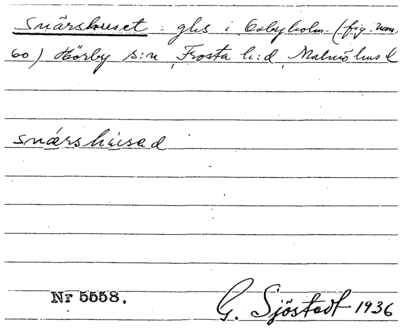 Snärshuset: ghs i Osbyholm. (fig. num.
60) Hörby s:n, Frosta h:d, Malmöhus l
snárshúsad
Nr 5558.
G. Sjöstedt 1936